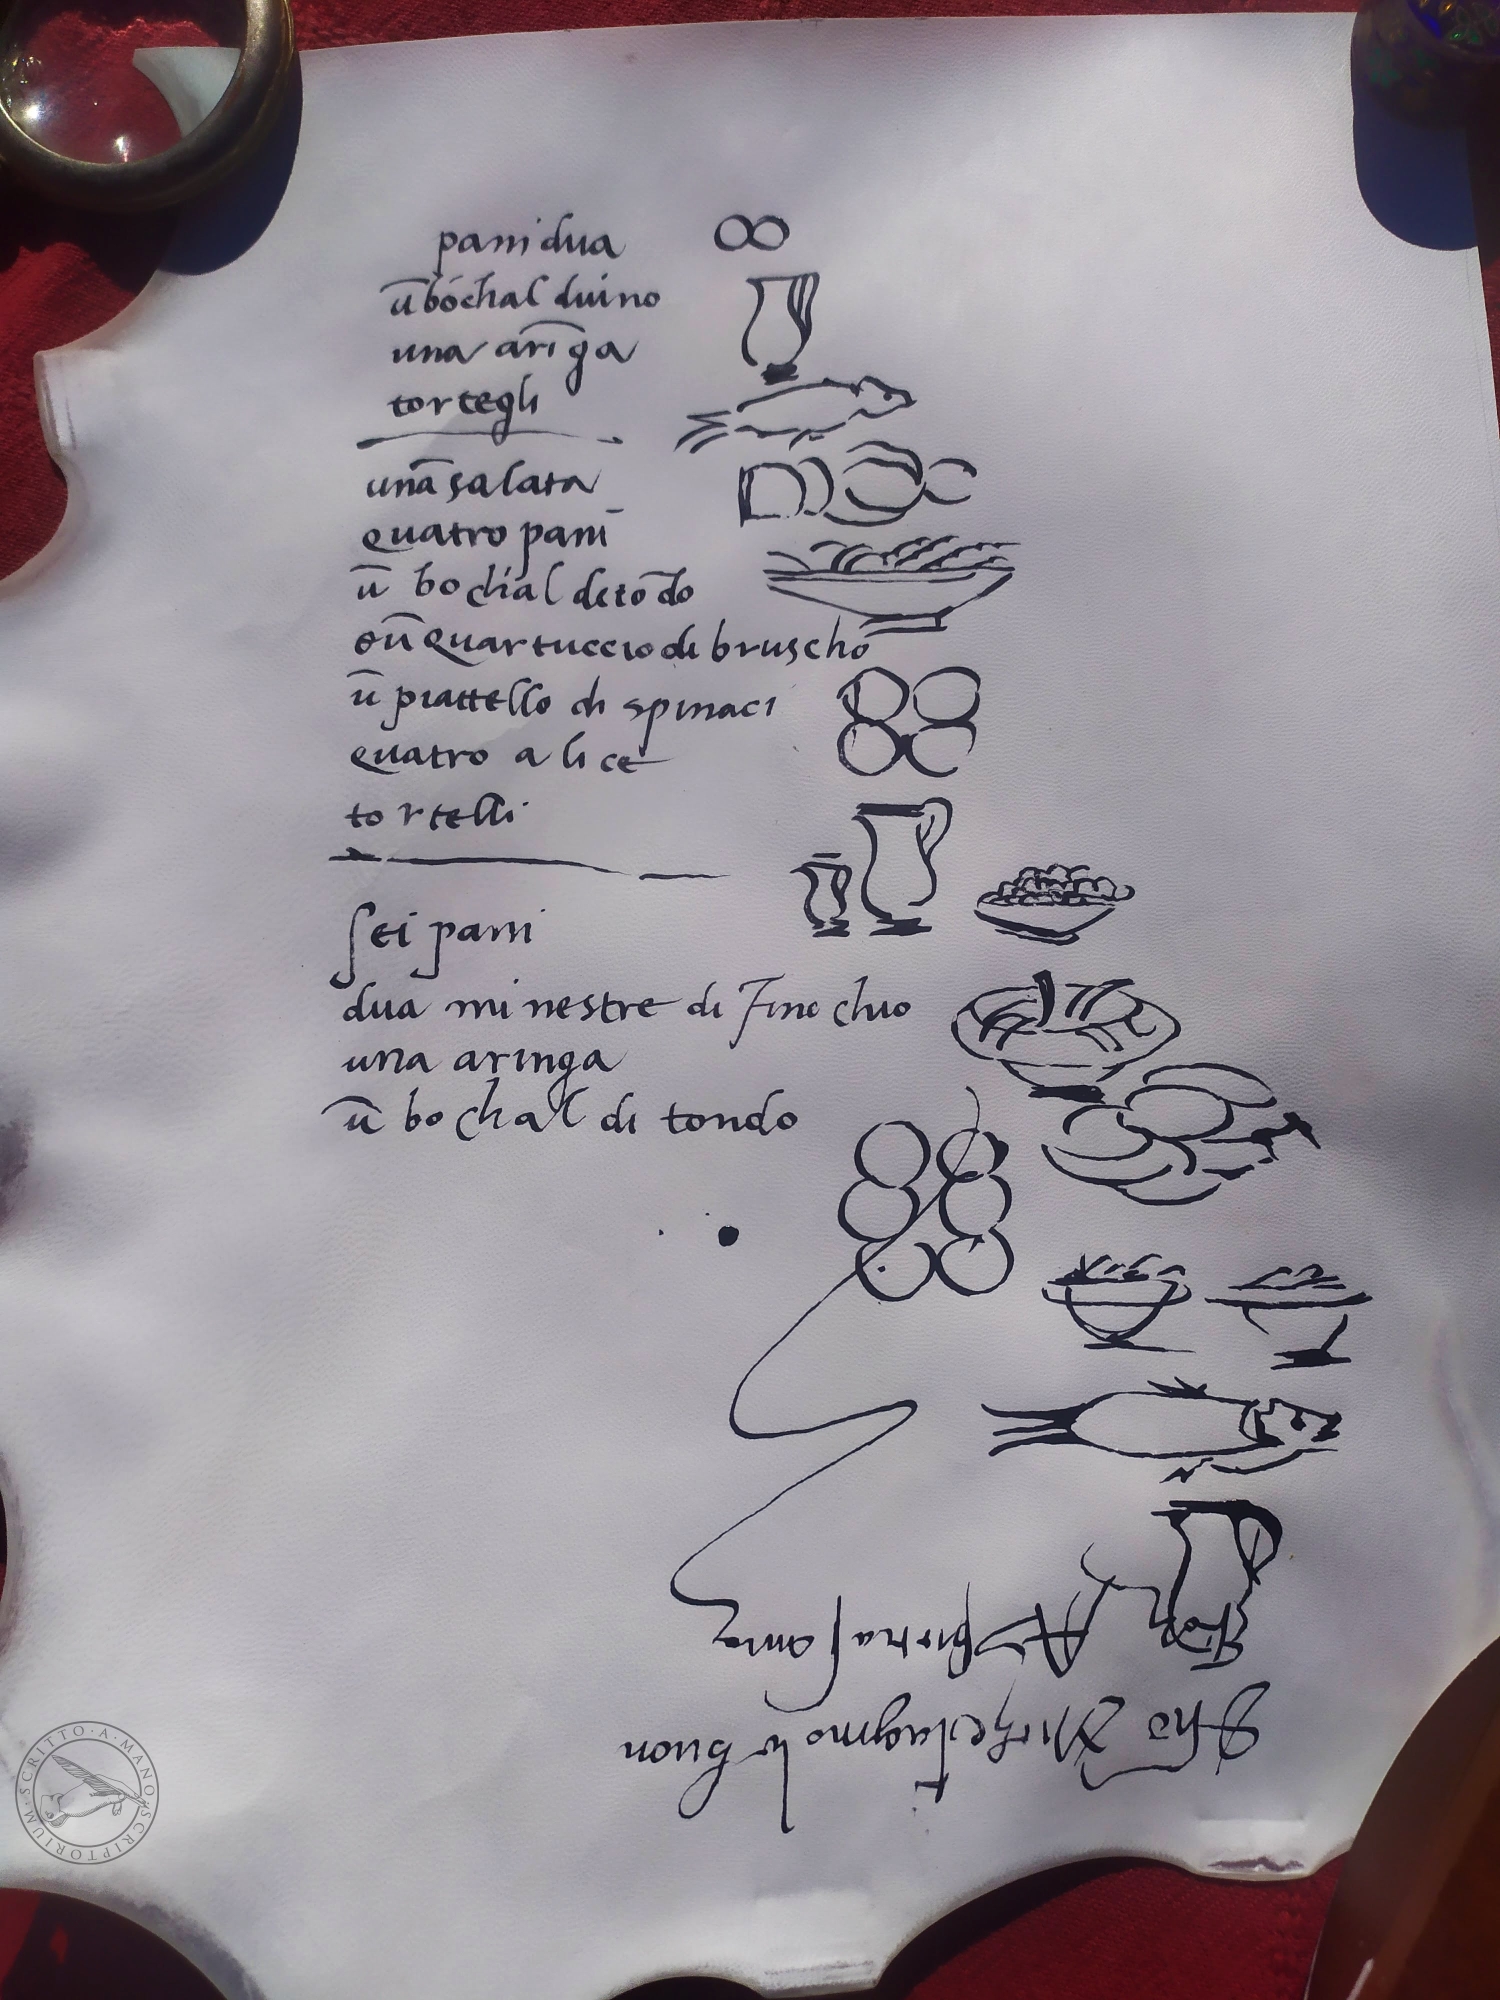 pani dua
ū bóchal duino
una arīga
tortegli
una salata
quatro pani
ū bochal detōdo
e ūquartuccio di bruscho
ū piattello di spinaci
quatro alice
tortelli
ſei pani
dua minestre di finochio
una aringa
ū bochal di tondo
buon
SCRITTO·A·MANO·SCRIPTORIUM·